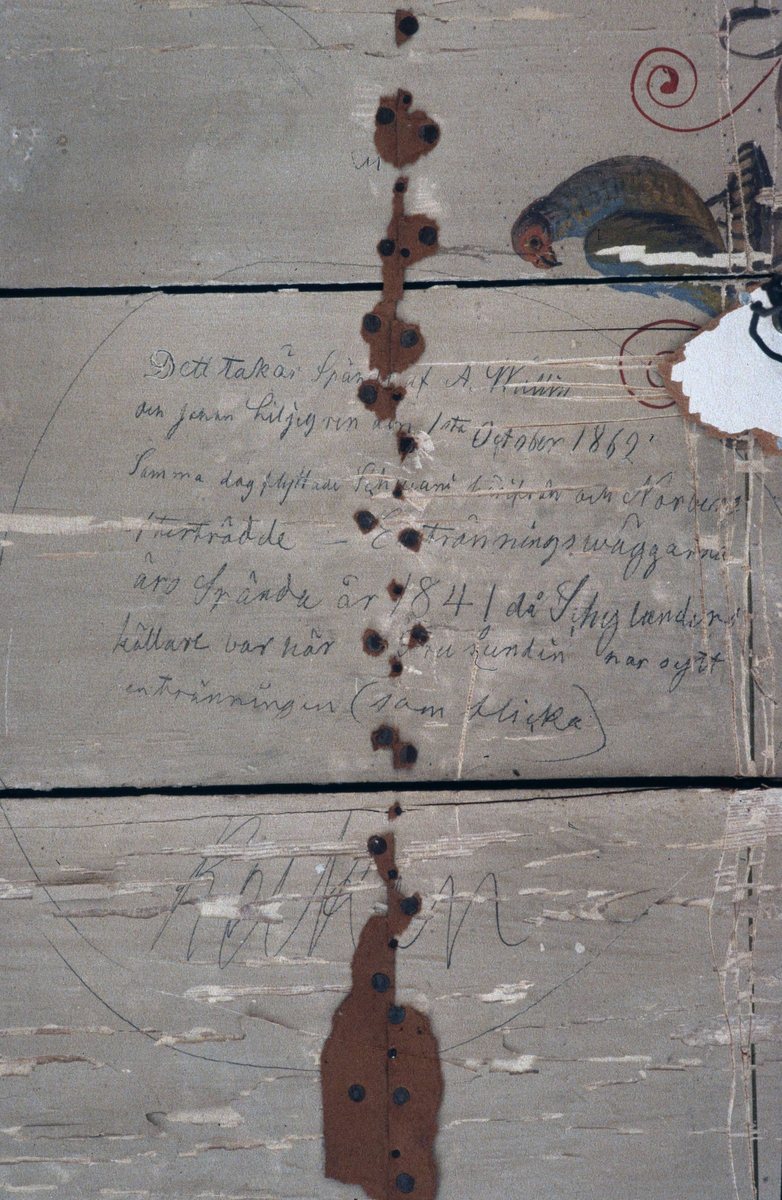 Dett tak är Spändt af A. Wallin
och Johan Liljegren den 1sta October 1862
Samma dag flyttade Schwani härifrån och Norberg
iterträdde — Entränningswäggarne
äro Spända år 1841 då Schylanders
källare var här Fru Lundin har sytt
entränningen (som flicka)